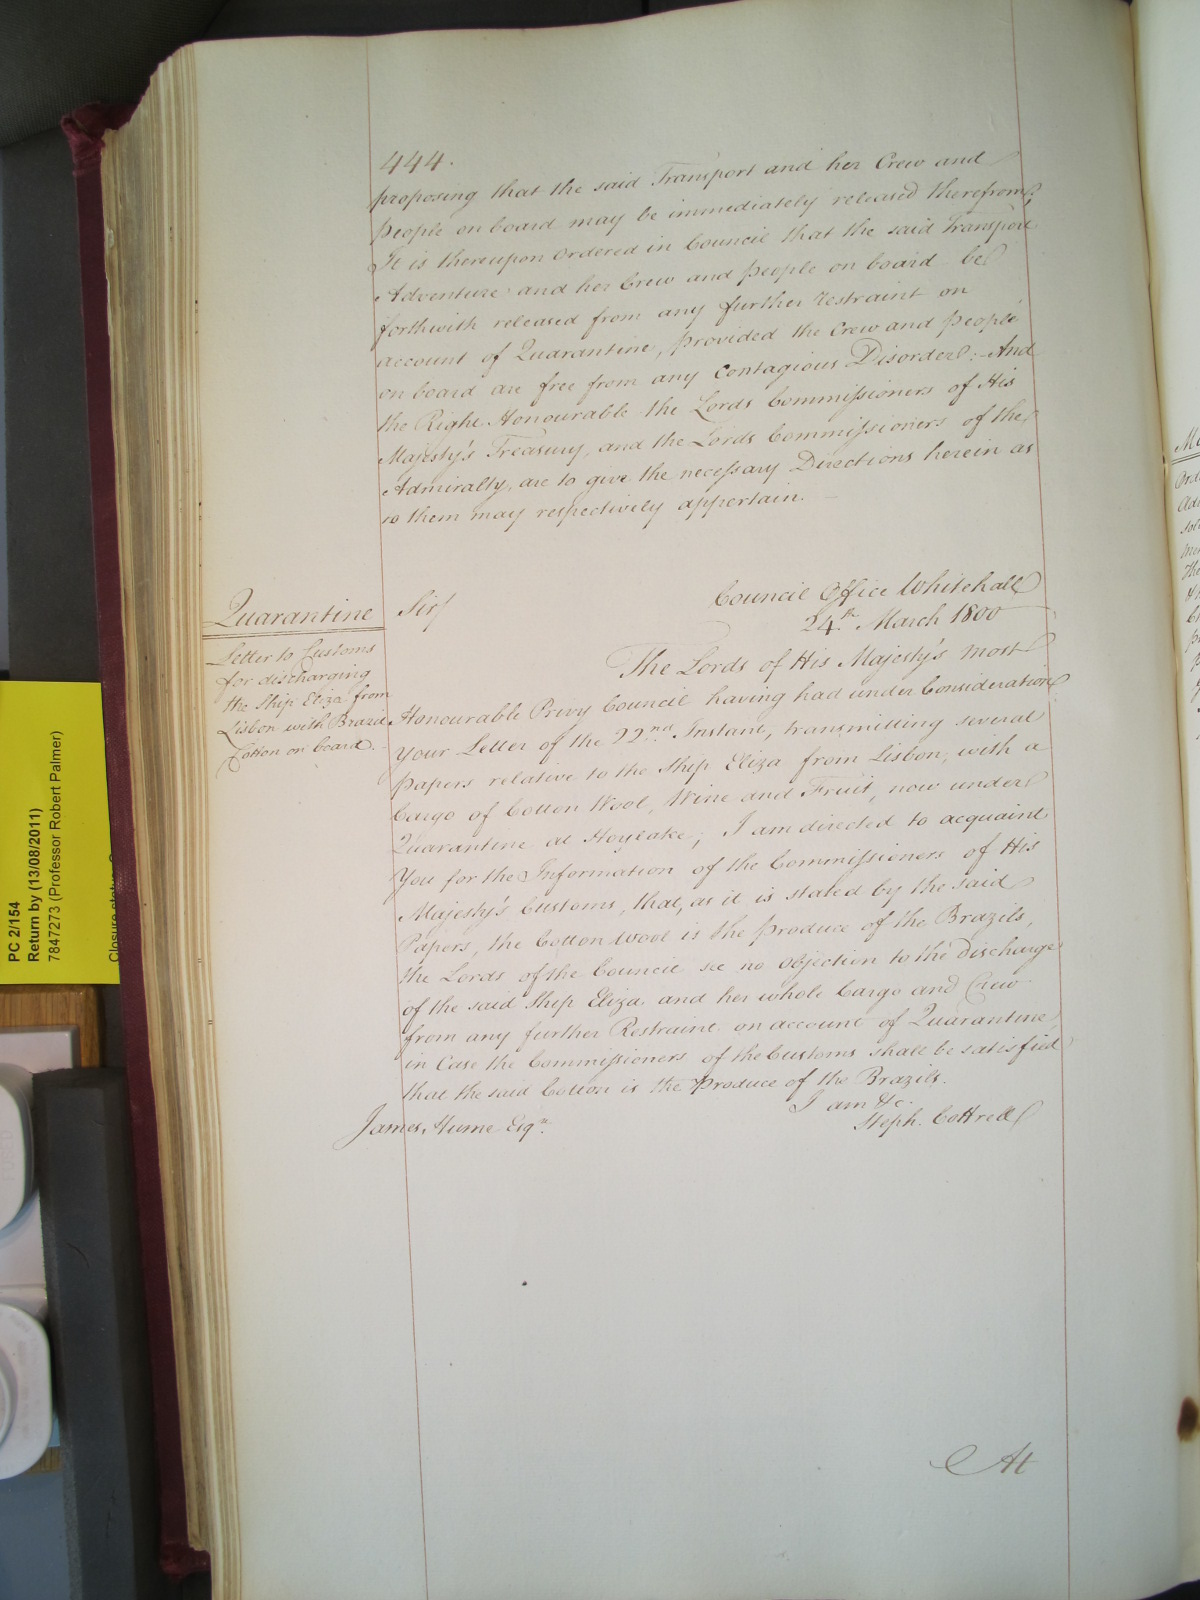 444.
proposing that the said Transport and her Crew and
People on board may be immediately released therefrom;
It is thereupon Ordered in Council that the said Transport
Adventure and her Crew and people on board be
forthwith released from any further restraint on
account of Quarantine, provided the Crew and People
on board are free from any Contagious Disorder: And
the Right Honourable the Lords Commissioners of His
Majesty's Treasury, and the Lords Commissioners of the
Admiralty, are to give the necessary Directions herein as
to them may respectively appertain.
Quarantine
Letter to Customs
for discharging
the Ship Eliza from
Lisbon with Brazil
Cotton on board.
Sir/
Council Office Whitehall
24th March 1800
The Lords of His Majesty's most
Honourable Privy Council having had under Consideration
Your Letter of the 22nd Instant, transmitting several
Papers relative to the Ship Eliza from Lisbon, with a
Cargo of Cotton Wool, Wine and Fruit, now under
Quarantine at Hoylake; I am directed to acquaint
You for the Information of the Commissioners of His
Majesty's Customs, that, as it is stated by the said
Papers, the Cotton Wool is the Produce of the Brazils,
the Lords of the Council see no Objection to the Discharge
of the said Ship Eliza and her whole Cargo and Crew
from any further Restraint on account of Quarantine,
in Case the Commissioners of the Customs shall be satisfied
that the said Cotton is the Produce of the Brazils.
I am &c.
Steph. Cottrell
James Hume Esqr.
At
PC 2/154
Return by (13/08/2011)
7847273 (Professor Robert Palmer)
Closure status: